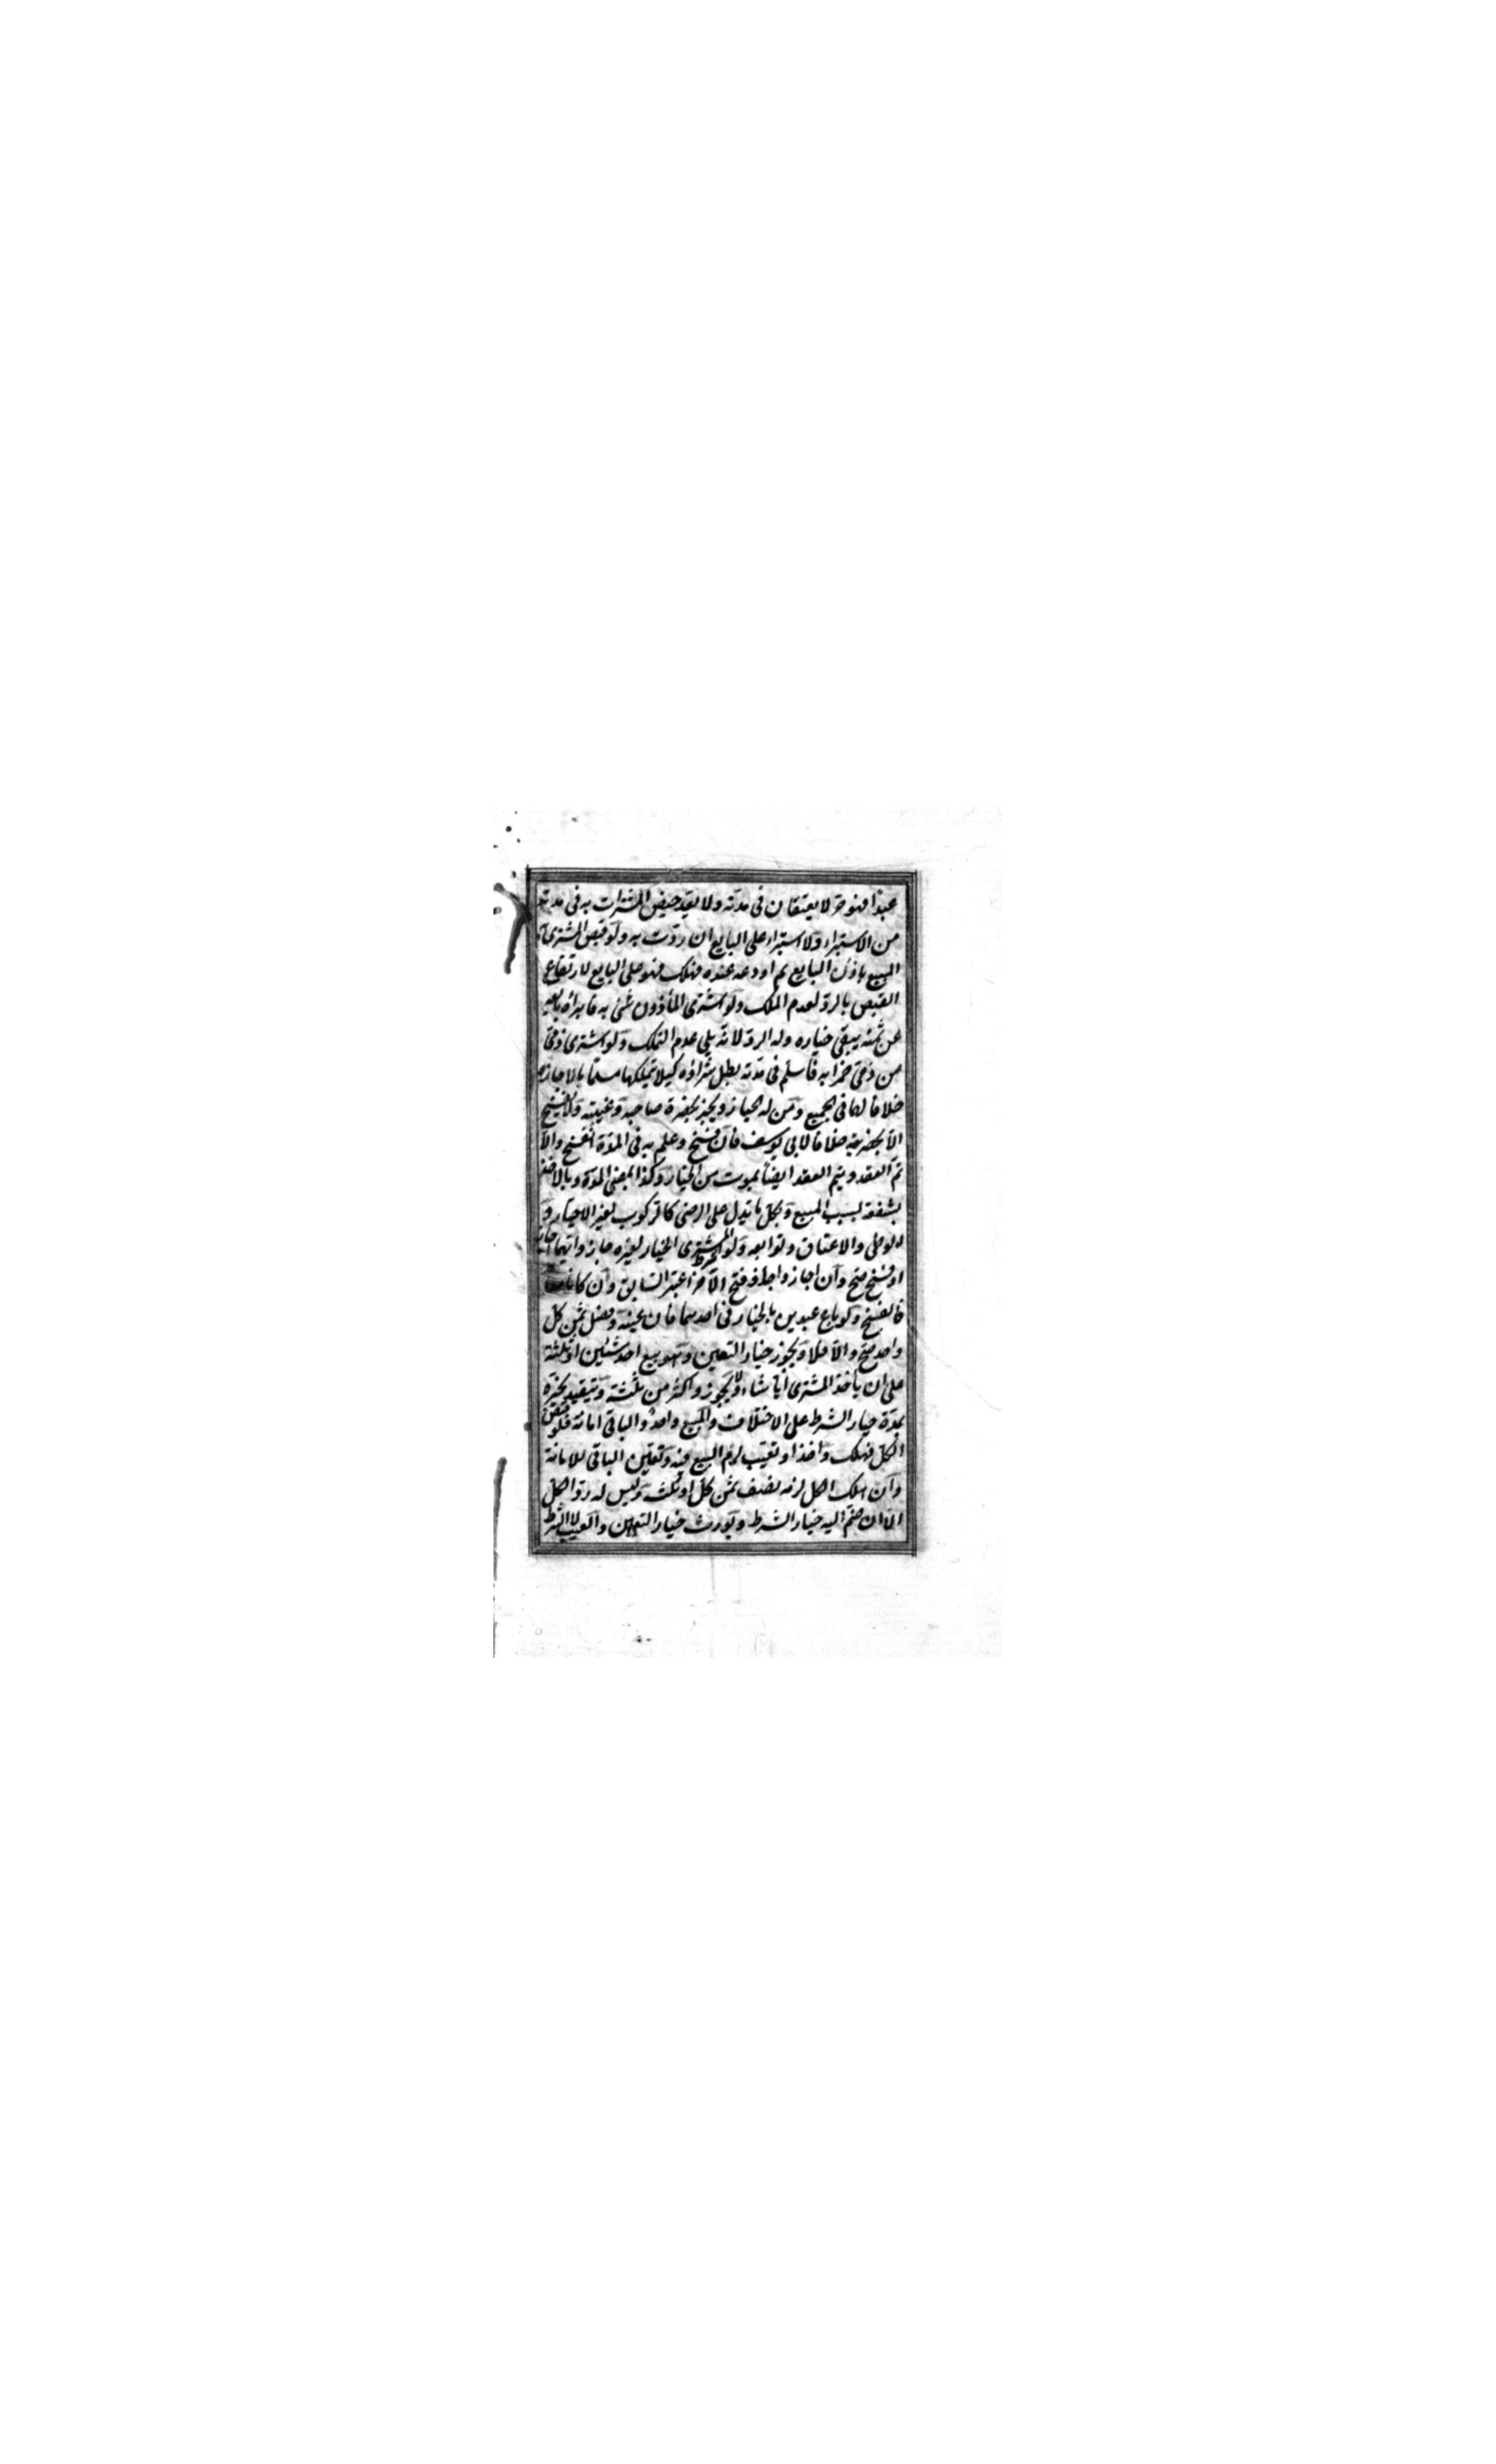 عبدا فهو حر لا يعتقان في مدته ولا يعد حيض المشترات به في مدته
من الاستبراء ولا استبراء على البايع ان ردت به ولو قبض المشترى
المبيع باذن البايع ثم اودعه عنده فهلك فهو على البايع لارتفاع
القبض بالرد لعدم الملك ولو اشترى المأذون شئ به فابراه بايعه
عن ثمنه يبقى خياره وله الرد لانه يلى عدم التملك ولو اشترى ذمى
من ذمى خمرا به فأسلم في مدته بطل شراؤه كيلا تملكها مسلما بالاجازه
خلافا لهما في الجميع ومن له الخيار ويجيز بحضرة صاحبه وغيبته ولا يفسخ
الا بحضرته خلافا لابى يوسف فأن فسخ وعلم به في المدة انفسخ والا
تم العقد ويتم العقد ايضا بموت من الخيار وكذا بمضى المدة وبالاخذ
بشفعة بسبب المبيع وبكل ما يدل على الرضى كالركوب لغير الاختيار و
الوطى والاعتاق وتوابعه ولو شرط المشترى الخيار لغيره جاز وايهما اجاز
او فسخ صح وان اجاز واحد وفسخ الآخر اعتبر السابق وان كانا معا
فالفسخ ولو باع عبدين بالخيار في احدهما فان عينه وفصل ثمن كل
واحد صح والا فلا ويجوز خيار التعين وهو بيع احد شئين او ثلثة
على ان يأخذ المشترى ايا شاء ولا يجوز واكثر من ثلثة ويتقيد بخيره
بمدة خيار الشرط على الاختلاف والمبيع واحد والباقى امانة فلو قبض
الكل فهلك واخذ او تعيب لزم البيع فيه وتعين الباقى للامانة
وان هلك الكل لزمه نصف ثمن كل او ثلث وليس له رد الكل
الا ان ضم اليه خيار الشرط ويورث خيار التعين والعيب لا الشرط